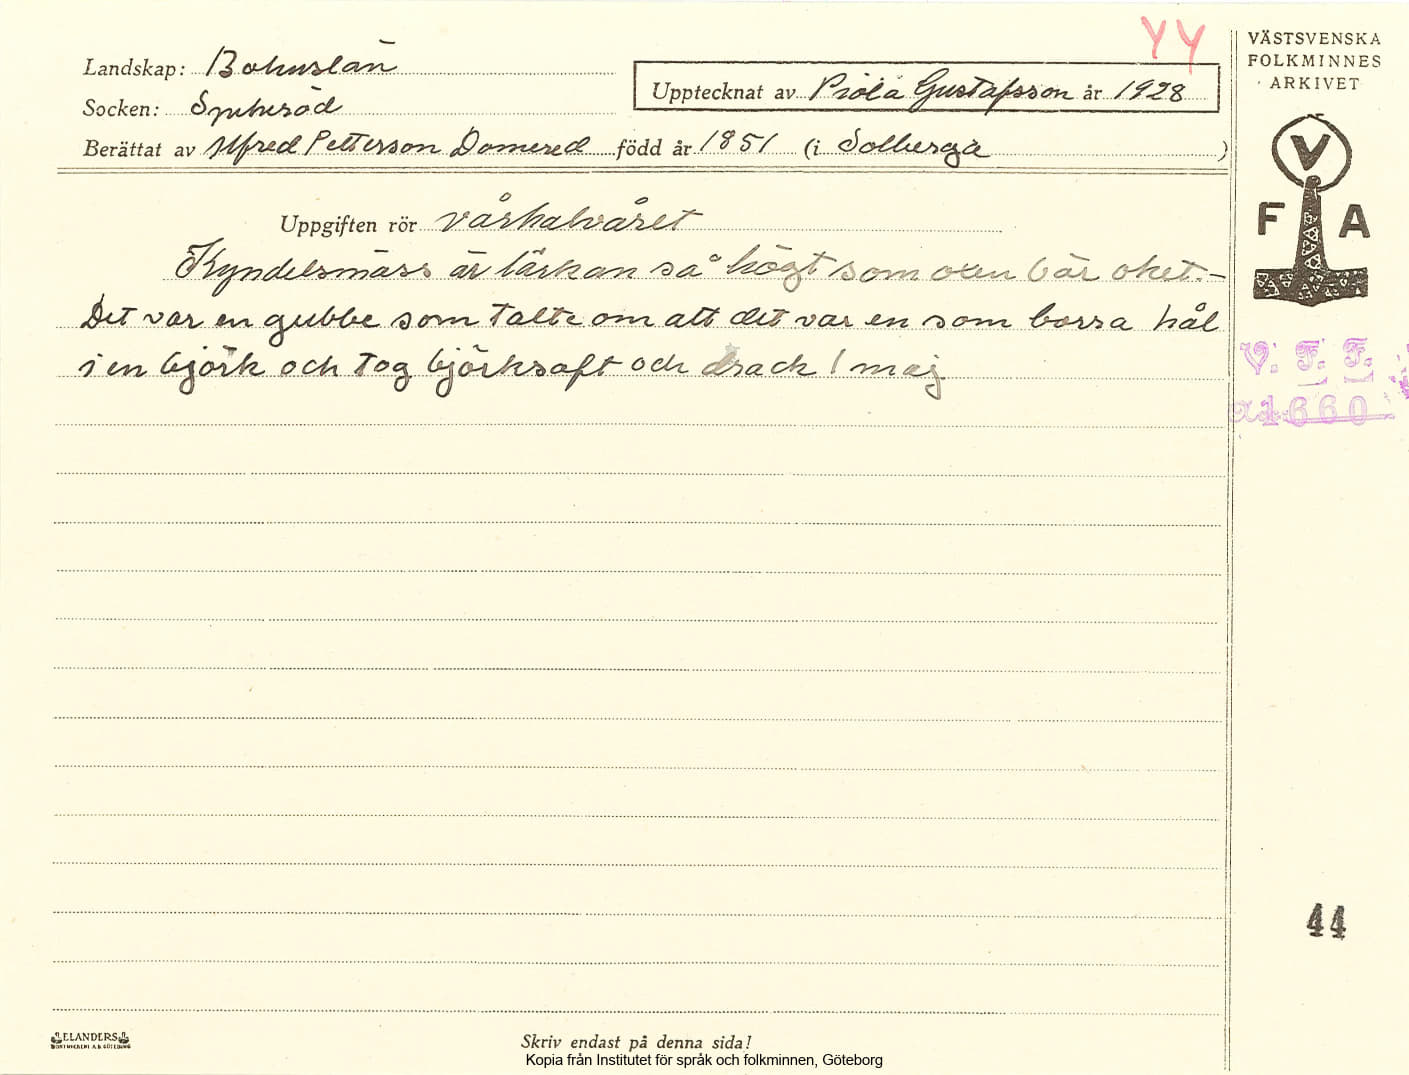 YY
Landskap: Bohuslän
Socken: Spekeröd
Upptecknat av Piola Gustafsson år 1928
Berättat av Alfred Petterson Domered född år 1851 (i Solberga )
Uppgiften rör vårhalvåret
Kyndelsmäss är lärkan så högt som oxen bär oket. –
Det var en gubbe som talte om att det var en som borra hål
i en björk och tog björksaft och drack 1 maj
VÄSTSVENSKA
FOLKMINNES
ARKIVET
V
F A
V. F. F.
1660
44
ELANDERS
Skriv endast på denna sida!
Kopia från Institutet för språk och folkminnen, Göteborg